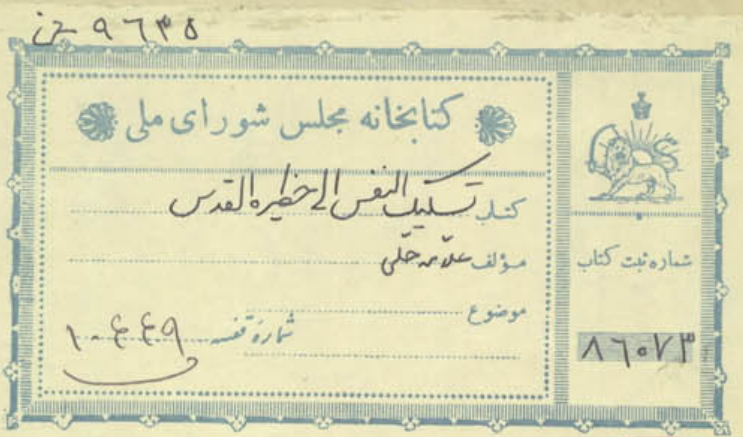 ۹۶۳۵
کتابخانه مجلس شورای ملی
کتاب تسلیک النفس الی حظیرة القدس
مؤلف علامه حلی
موضوع
شماره قفسه ۱۰۴۴۹
شماره ثبت کتاب
۸۶۰۷۳